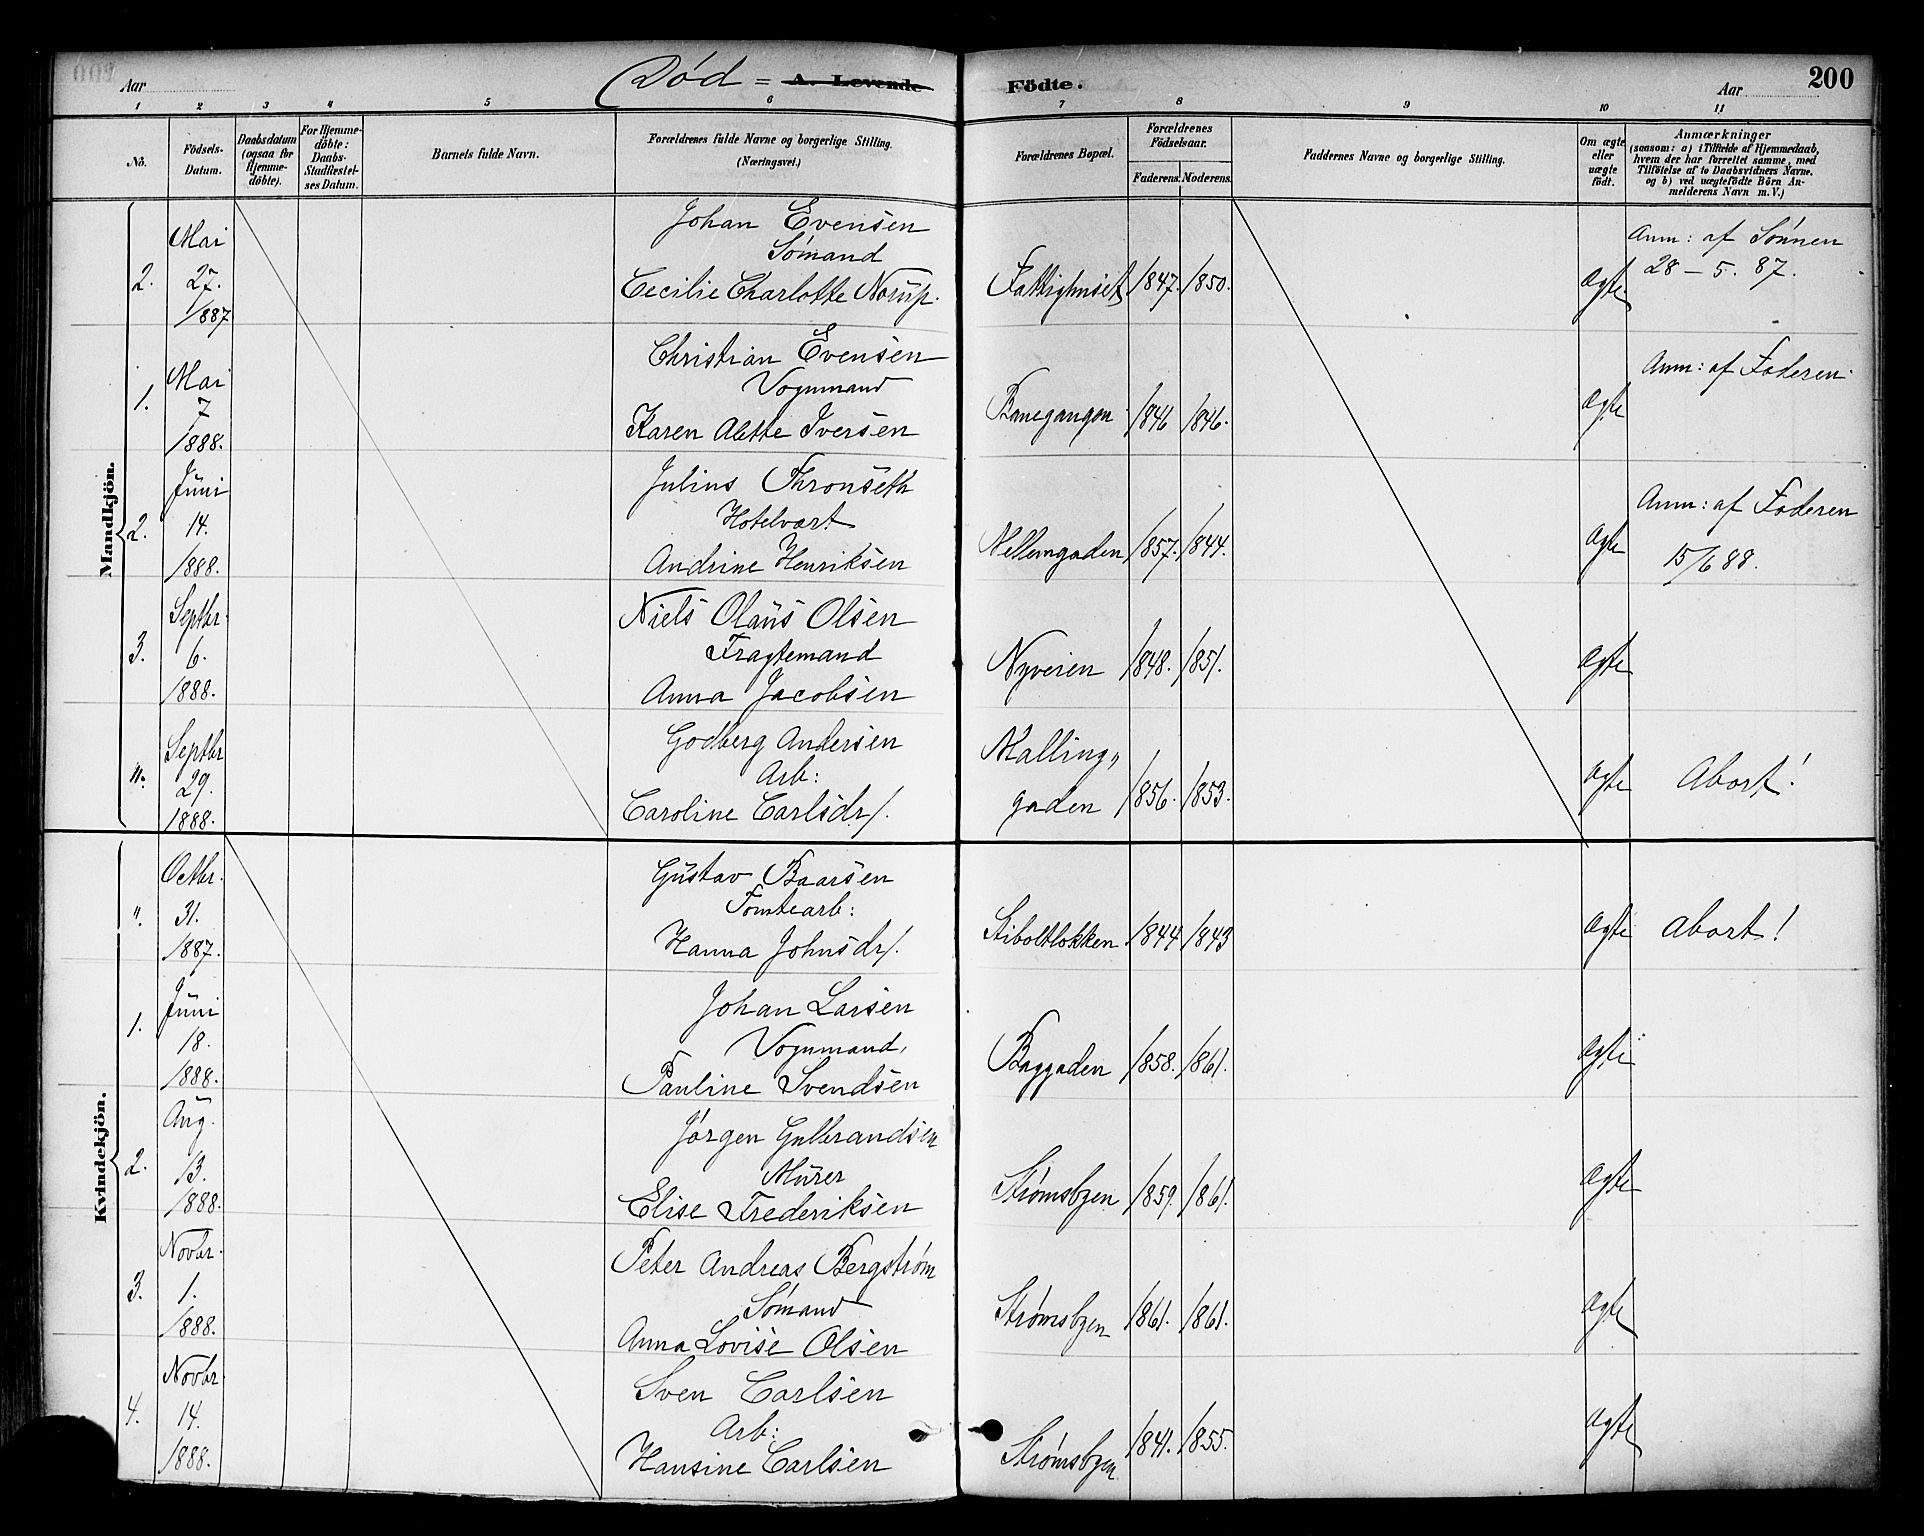 Aar
Död = A. Levende Födte.
Aar
200
1 2 3 4 5 6 7 8 9 10 11
No.
Födsels-
Datum.
Daabsdatum
(ogsaa for
Hjemme-
døbte).
For Hjemme-
döbte:
Daabs-
Stadfestel-
ses Datum.
Barnets fulde Navn.
Forældrenes fulde Navne og borgerlige Stilling.
(Næringsvei.)
Forældrenes Bopæl.
Forældrenes
Födselsaar.
Faderens. Moderens.
Faddernes Navne og borgerlige Stilling.
Om ægte
eller
uægte
födt.
Anmærkninger
(saasom: a) i Tilfælde af Hjemmedaab,
hvem der har forrettet samme, med
Tilföielse af to Daabsvidners Navne.
og b) ved uægtefödte Börn An-
melderens Navn m. V.)
Mandkjön.
2.
Mai
27.
1887
Johan Evensen
Sømand
Cecilie Charlotte Norup.
Fattighuset 1847. 1850.
ægte
Anm: af Sønnen
28 - 5. 87.
1.
Mai
7
1888.
Christian Evensen
Vognmand
Karen Alette Iversen
Banegangen 1846 1846.
ægte
Anm: af Faderen.
2.
Juni
14.
1888.
Julius Thronseth
Hotelvært
Andrine Henriksen
Mellemgaden 1857. 1844.
ægte
Anm: af Faderen
15/6 88.
3.
Septbr.
6.
1888.
Niels Olaus Olsen
Fragtemand
Anna Jacobsen
Nyveien 1848. 1851.
ægte
".
Septbr
29.
1888.
Godberg Andersen
Arb:
Caroline Carlsdr/.
Malling"
gaden 1856. 1853.
ægte
Abort!
Kvindekjön.
".
Octbr.
31.
1887.
Gustav Baarsen
Tomtearb:
Hanna Johnsdr/.
Stiboltløkken 1844 1843
ægte
Abort!
1.
Juni
18.
1888.
Johan Larsen
Vognmand,
Pauline Svendsen
Baggaden 1858. 1861.
ægte
2.
Aug.
13.
1888.
Jørgen Gulbrandsen
Murer
Elise Frederiksen
Strømsbyen 1859. 1861.
ægte
3.
Novbr.
1.
1888.
Peter Andreas Bergstrøm
Sømand
Anna Lovise Olsen
Strømsbyen 1861. 1861.
ægte
4.
Novbr.
14.
1888.
Sven Carlsen
Arb:
Hansine Carlsen
Strømsbyen 1841. 1855.
ægte